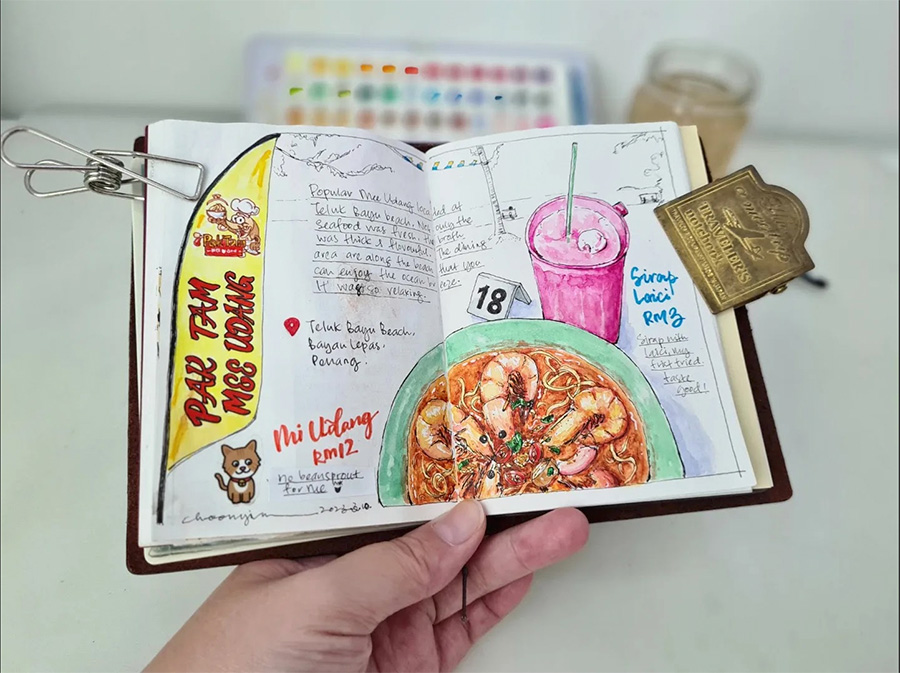 PAK TAM
MEE UDANG
Popular Mee Udang located at
Teluk Bayu beach. Not only the
seafood was fresh, the broth
was thick & flavourful. The dining
area are along the beach that you
can enjoy the ocean breeze.
It was so relaxing.
Teluk Bayu Beach,
Bayan Lepas,
Penang.
Mi Udang
RM12
no beansprout
for me
choonyin
18
Sirap
Laici
RM3
Sirap with
Laici, my
first tried.
taste
good!
TRAVELER'S
notebook